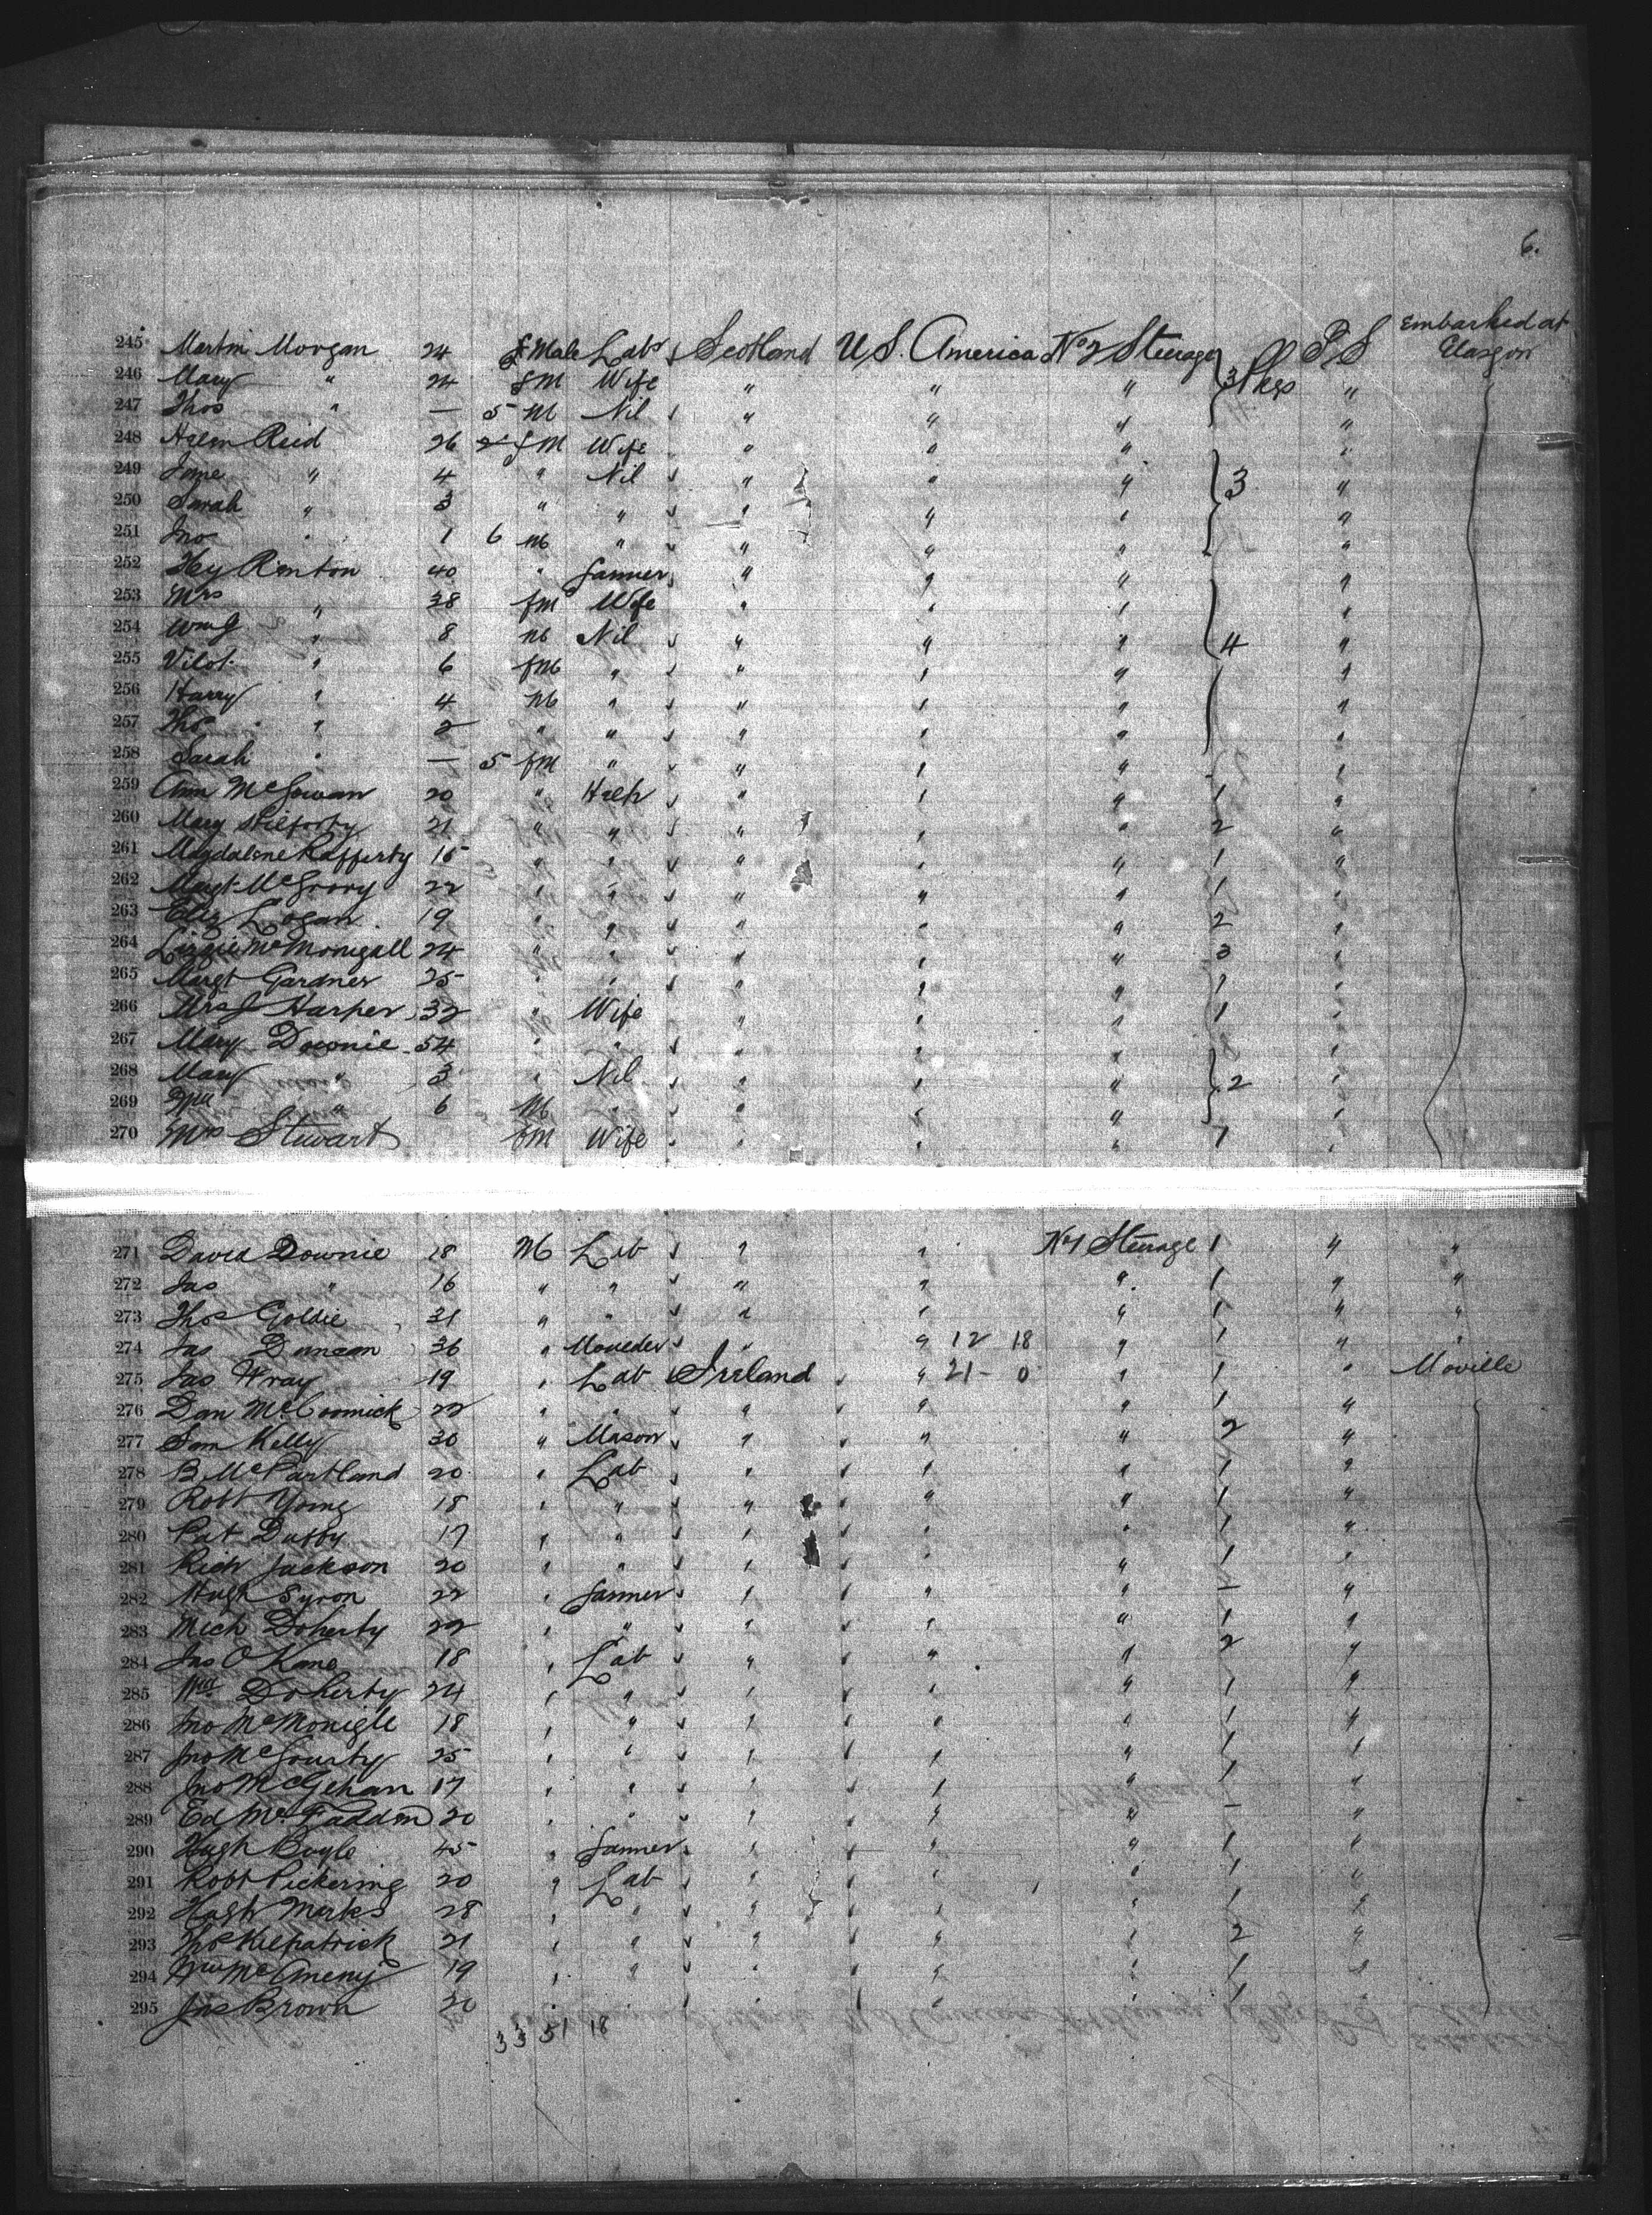 6.
Embarked at
245 Martin Morgan 24 Male Labr Scotland U.S. America No 2 Steerage 3 Pkgs P S Glasgow
246 Mary " 24 fM Wife " " " "
247 Thos " — 5 M Nil " " " "
248 Helen Reid 26 fM Wife " " "
249 Jane " 4 " Nil " " " 3 "
250 Sarah " 3 " " " " " "
251 Jno " 1 6 M " " " " "
252 Hy Renton 40 " Farmer " " " "
253 Mrs " 38 fM Wife " " " "
254 Wm J " 8 M Nil " " " 4 "
255 Vilot " 6 fM " " " " "
256 Harry " 4 M " " " " "
257 Thos " 2 " " " " " "
258 Sarah " — 5 fM " " " " "
259 Ann McGowan 20 " " " " 1 "
260 Mary 21 " " " " " 2 "
261 Magdalene Rafferty 15 " " " " " 1 "
262 Margt McGrory 22 " " " " " 1 "
263 Eliz Logan 19 " " " " " 2 "
264 Lizzie McMonigall 24 " " " " " 3 "
265 Margt Gardner 25 " " " " " 1 "
266 Mrs J Harper 32 " Wife " " " 1 "
267 Mary Downie 54 " " " " " "
268 Mary " 3 " Nil " " " 2 "
269 Wm " 6 M " " " " "
270 Mrs Stewart fM Wife " " " 1 "
271 David Downie 18 M Lab " " No 1 Steerage 1 " "
272 Jas " 16 " " " " " 1 " "
273 Thos Goldie 31 " " " " " 1 " "
274 Jas Duncan 36 " Moulder " " 12 18 " 1 " "
275 Jas Wray 19 " Lab Ireland " 21 - 0 " 1 " Moville
276 Dan McCormick 22 " " " " " 1 "
277 Sam Kelly 30 " Mason " " " 2 "
278 B. McPartland 20 " Lab " " " 1 "
279 Robt Young 18 " " " " " 1 "
280 Pat Duffy 17 " " " " " 1 "
281 Rich Jackson 20 " " " " " 1 "
282 Hugh Syron 22 " Farmer " " " — "
283 Mich Doherty 22 " " " " " 1 "
284 Jno O Kane 18 " Lab " " " 2 "
285 Wm Doherty 24 " " " " " 1 "
286 Jno McMonigle 18 " " " " " 1 "
287 Jno McGourty 25 " " " " " 1 "
288 Jno McGehan 17 " " " " " 1 "
289 Ed McFadden 20 " " " " " — "
290 Hugh Boyle 45 " Farmer " " " 1 "
291 Robt Pickering 20 " Lab " " " 1 "
292 Hugh Marks 28 " " " " " 1 "
293 Thos Kilpatrick 21 " " " " " 2 "
294 Wm McAneny 19 " " " " " 1 "
295 Jas Brown 20 " " " " " 1 "
33 51 18